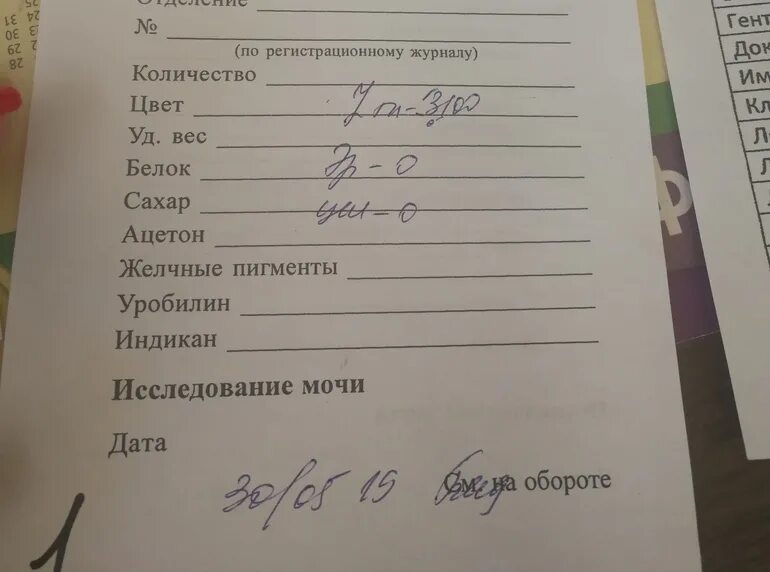 Отделение
№
(по регистрационному журналу)
Количество
Цвет
Уд. вес
Белок Эр - 0
Сахар
Ацетон
Желчные пигменты
Уробилин
Индикан
Исследование мочи
Дата
30/05 19 См. на обороте
1
Гент
Док
Им
Кл
25
31
30
29
28